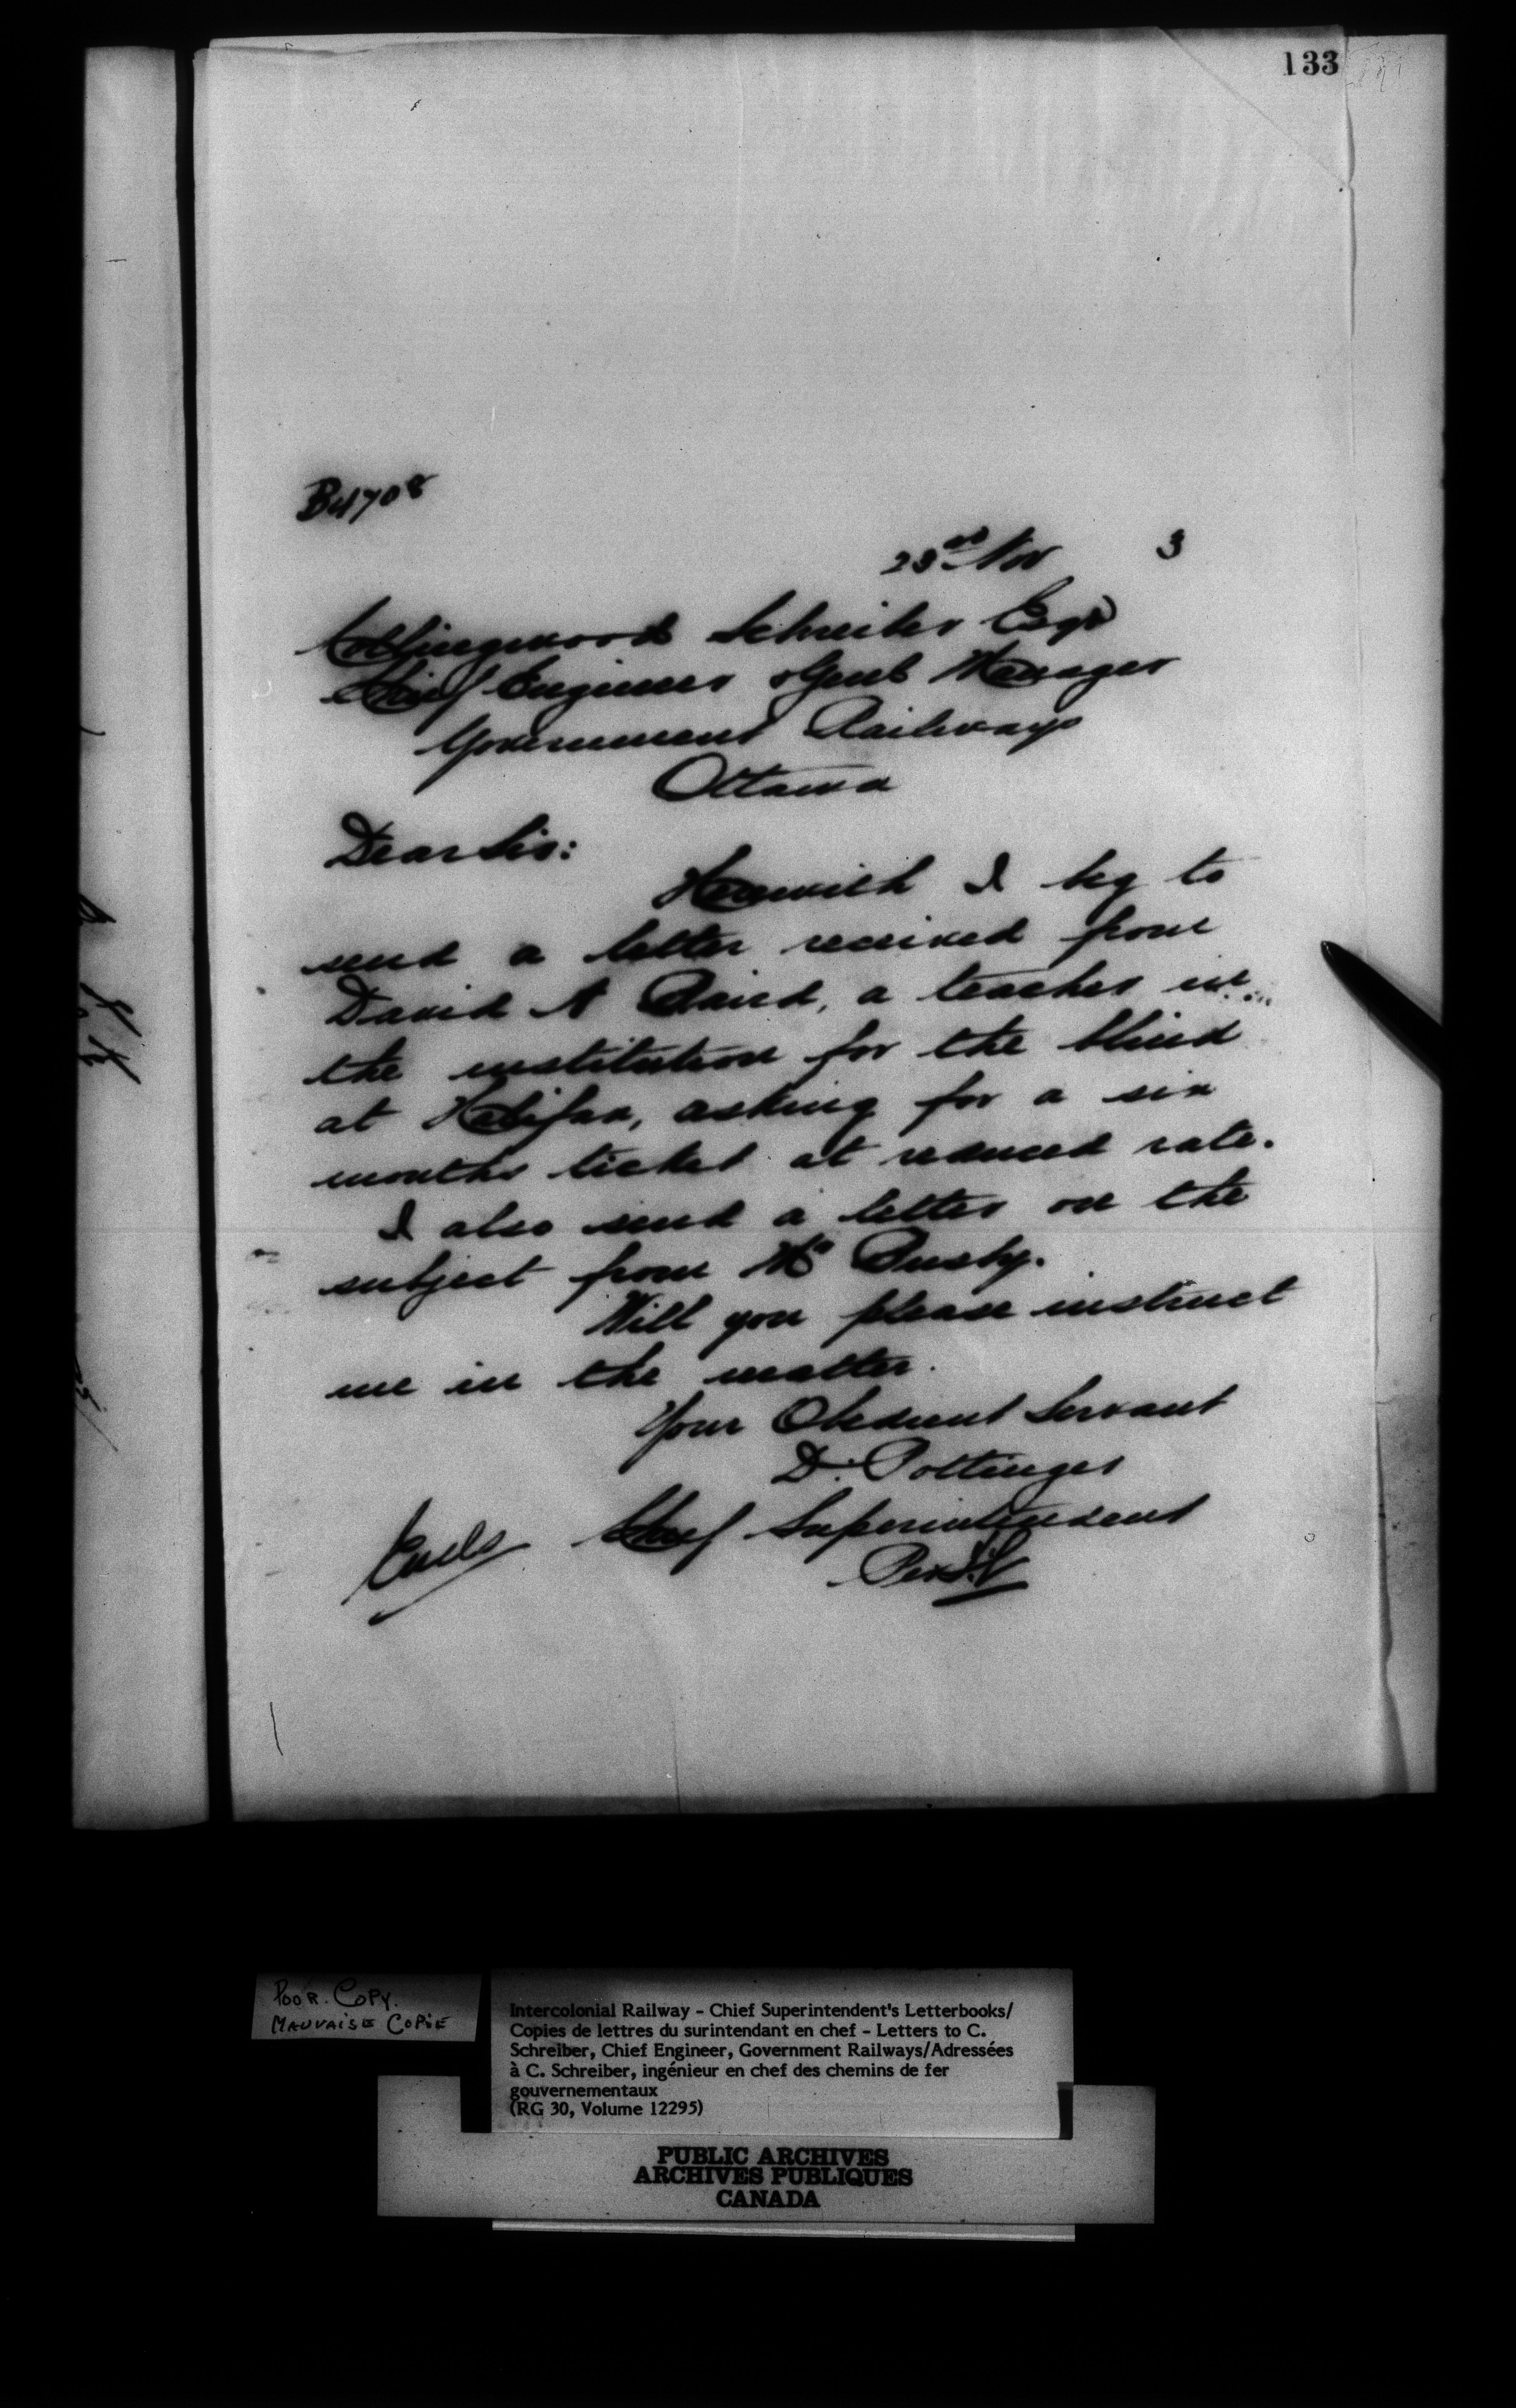 133
B4708
23rd Nov 3
Collingwood Schreiber Esqr
Chief Engineer & Genl Manager
Government Railways
Ottawa
Dear Sir:
Herewith I beg to
send a letter received from
David A Baird, a teacher in
the institution for the blind
at Halifax, asking for a six
months ticket at reduced rate.
I also send a letter on the
subject from Mr Busby.
Will you please instruct
me in the matter.
Your Obedient Servant
D. Pottinger
Encls Chief Superintendent
Per
POOR. COPY.
MAUVAISE COPIE
Intercolonial Railway - Chief Superintendent's Letterbooks/
Copies de lettres du surintendant en chef - Letters to C.
Schreiber, Chief Engineer, Government Railways/Adressées
à C. Schreiber, ingénieur en chef des chemins de fer
gouvernementaux
(RG 30, Volume 12295)
PUBLIC ARCHIVES
ARCHIVES PUBLIQUES
CANADA